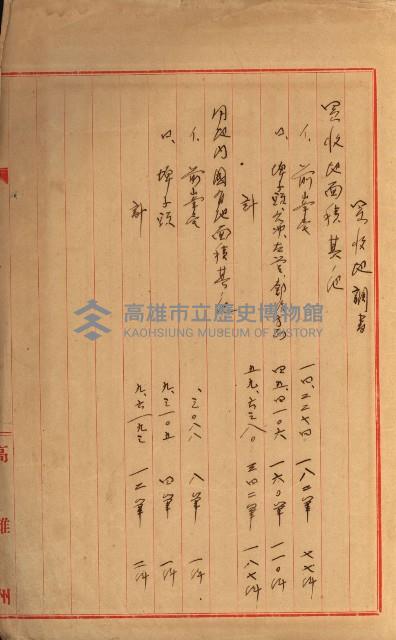 買收地調書
買收地面積其ノ他
イ、前峯尾 一四、二二七四 一八二筆 七七件
ロ、埤子頭 四五、四一〇六 一六〇筆 一一〇件
計 五九、六三八〇 三四二筆 一八七件
用地內國有地面積其ノ他
イ、前峯尾 、三〇八八 八筆 一件
ロ、埤子頭 九、三一〇五 四筆 一件
計 九、六一九三 一二筆 二件
高雄州
高雄市立歷史博物館
KAOHSIUNG MUSEUM OF HISTORY